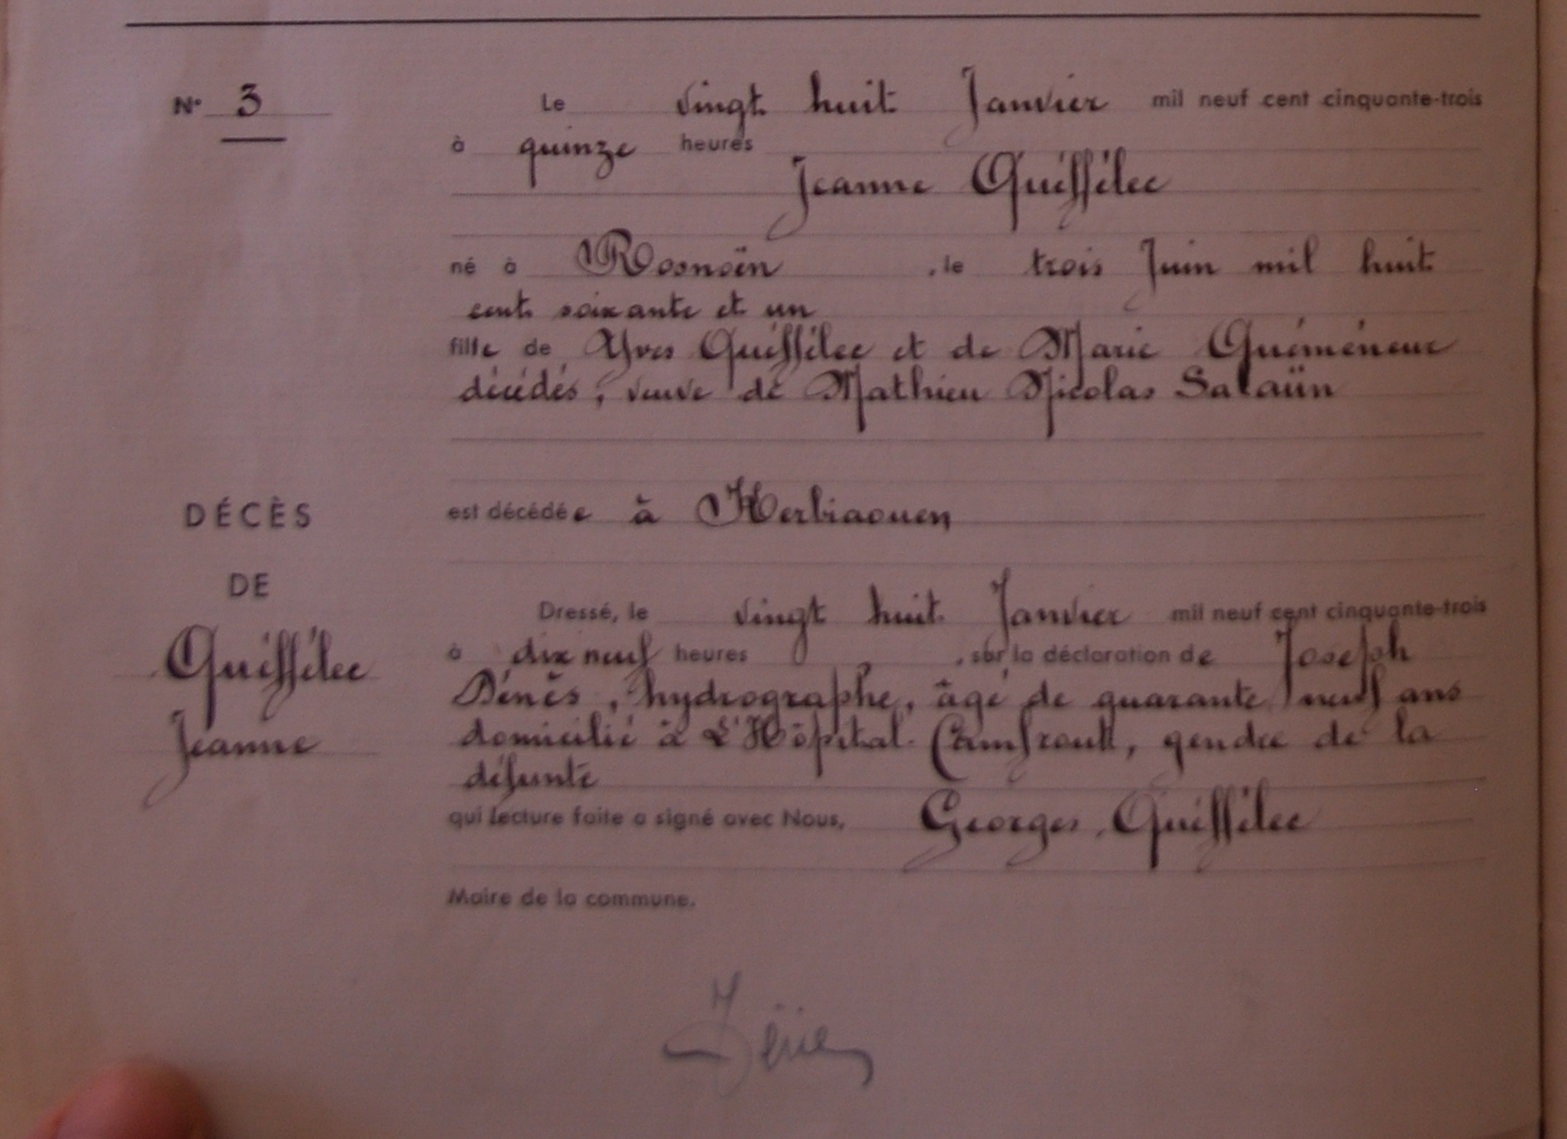 N° 3
Le vingt huit Janvier mil neuf cent cinquante-trois
à quinze heures
Jeanne Quéffélec
né à Rosnoën , le trois Juin mil huit
cent soixante et un
fille de Yves Quéffélec et de Marie Quéméneur
décédés, veuve de Mathieu Nicolas Salaün
DÉCÈS
est décédée à Kerbiaouen
DE
Quéffélec
Jeanne
Dressé, le vingt huit Janvier mil neuf cent cinquante-trois
à dix neuf heures , sur la déclaration de Joseph
Dénès, hydrographe, âgé de quarante neuf ans
domicilié à L'Hôpital-Camfrout, gendre de la
défunte
qui Lecture faite a signé avec Nous, Georges Quéffélec
Maire de la commune.